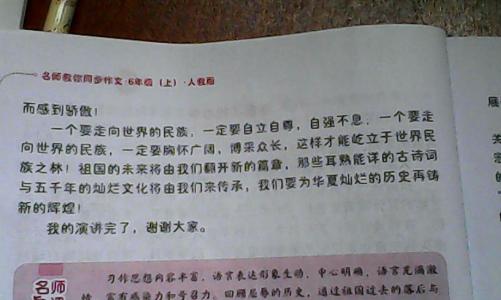 名师教你同步作文·6年级（上）·人教版
而感到骄傲！
一个要走向世界的民族，一定要自立自尊，自强不息，一个要走
向世界的民族，一定要胸怀广阔，博采众长，这样才能屹立于世界民
族之林！祖国的未来将由我们翻开新的篇章，那些耳熟能详的古诗词
与五千年的灿烂文化将由我们来传承，我们要为华夏灿烂的历史再铸
新的辉煌！
我的演讲完了，谢谢大家。
名师
习作思想内容丰富，语言表达形象生动，中心明确，语言充满激
富有感染力和号召力。回顾屈辱的历史，通过祖国过去的落后与
展